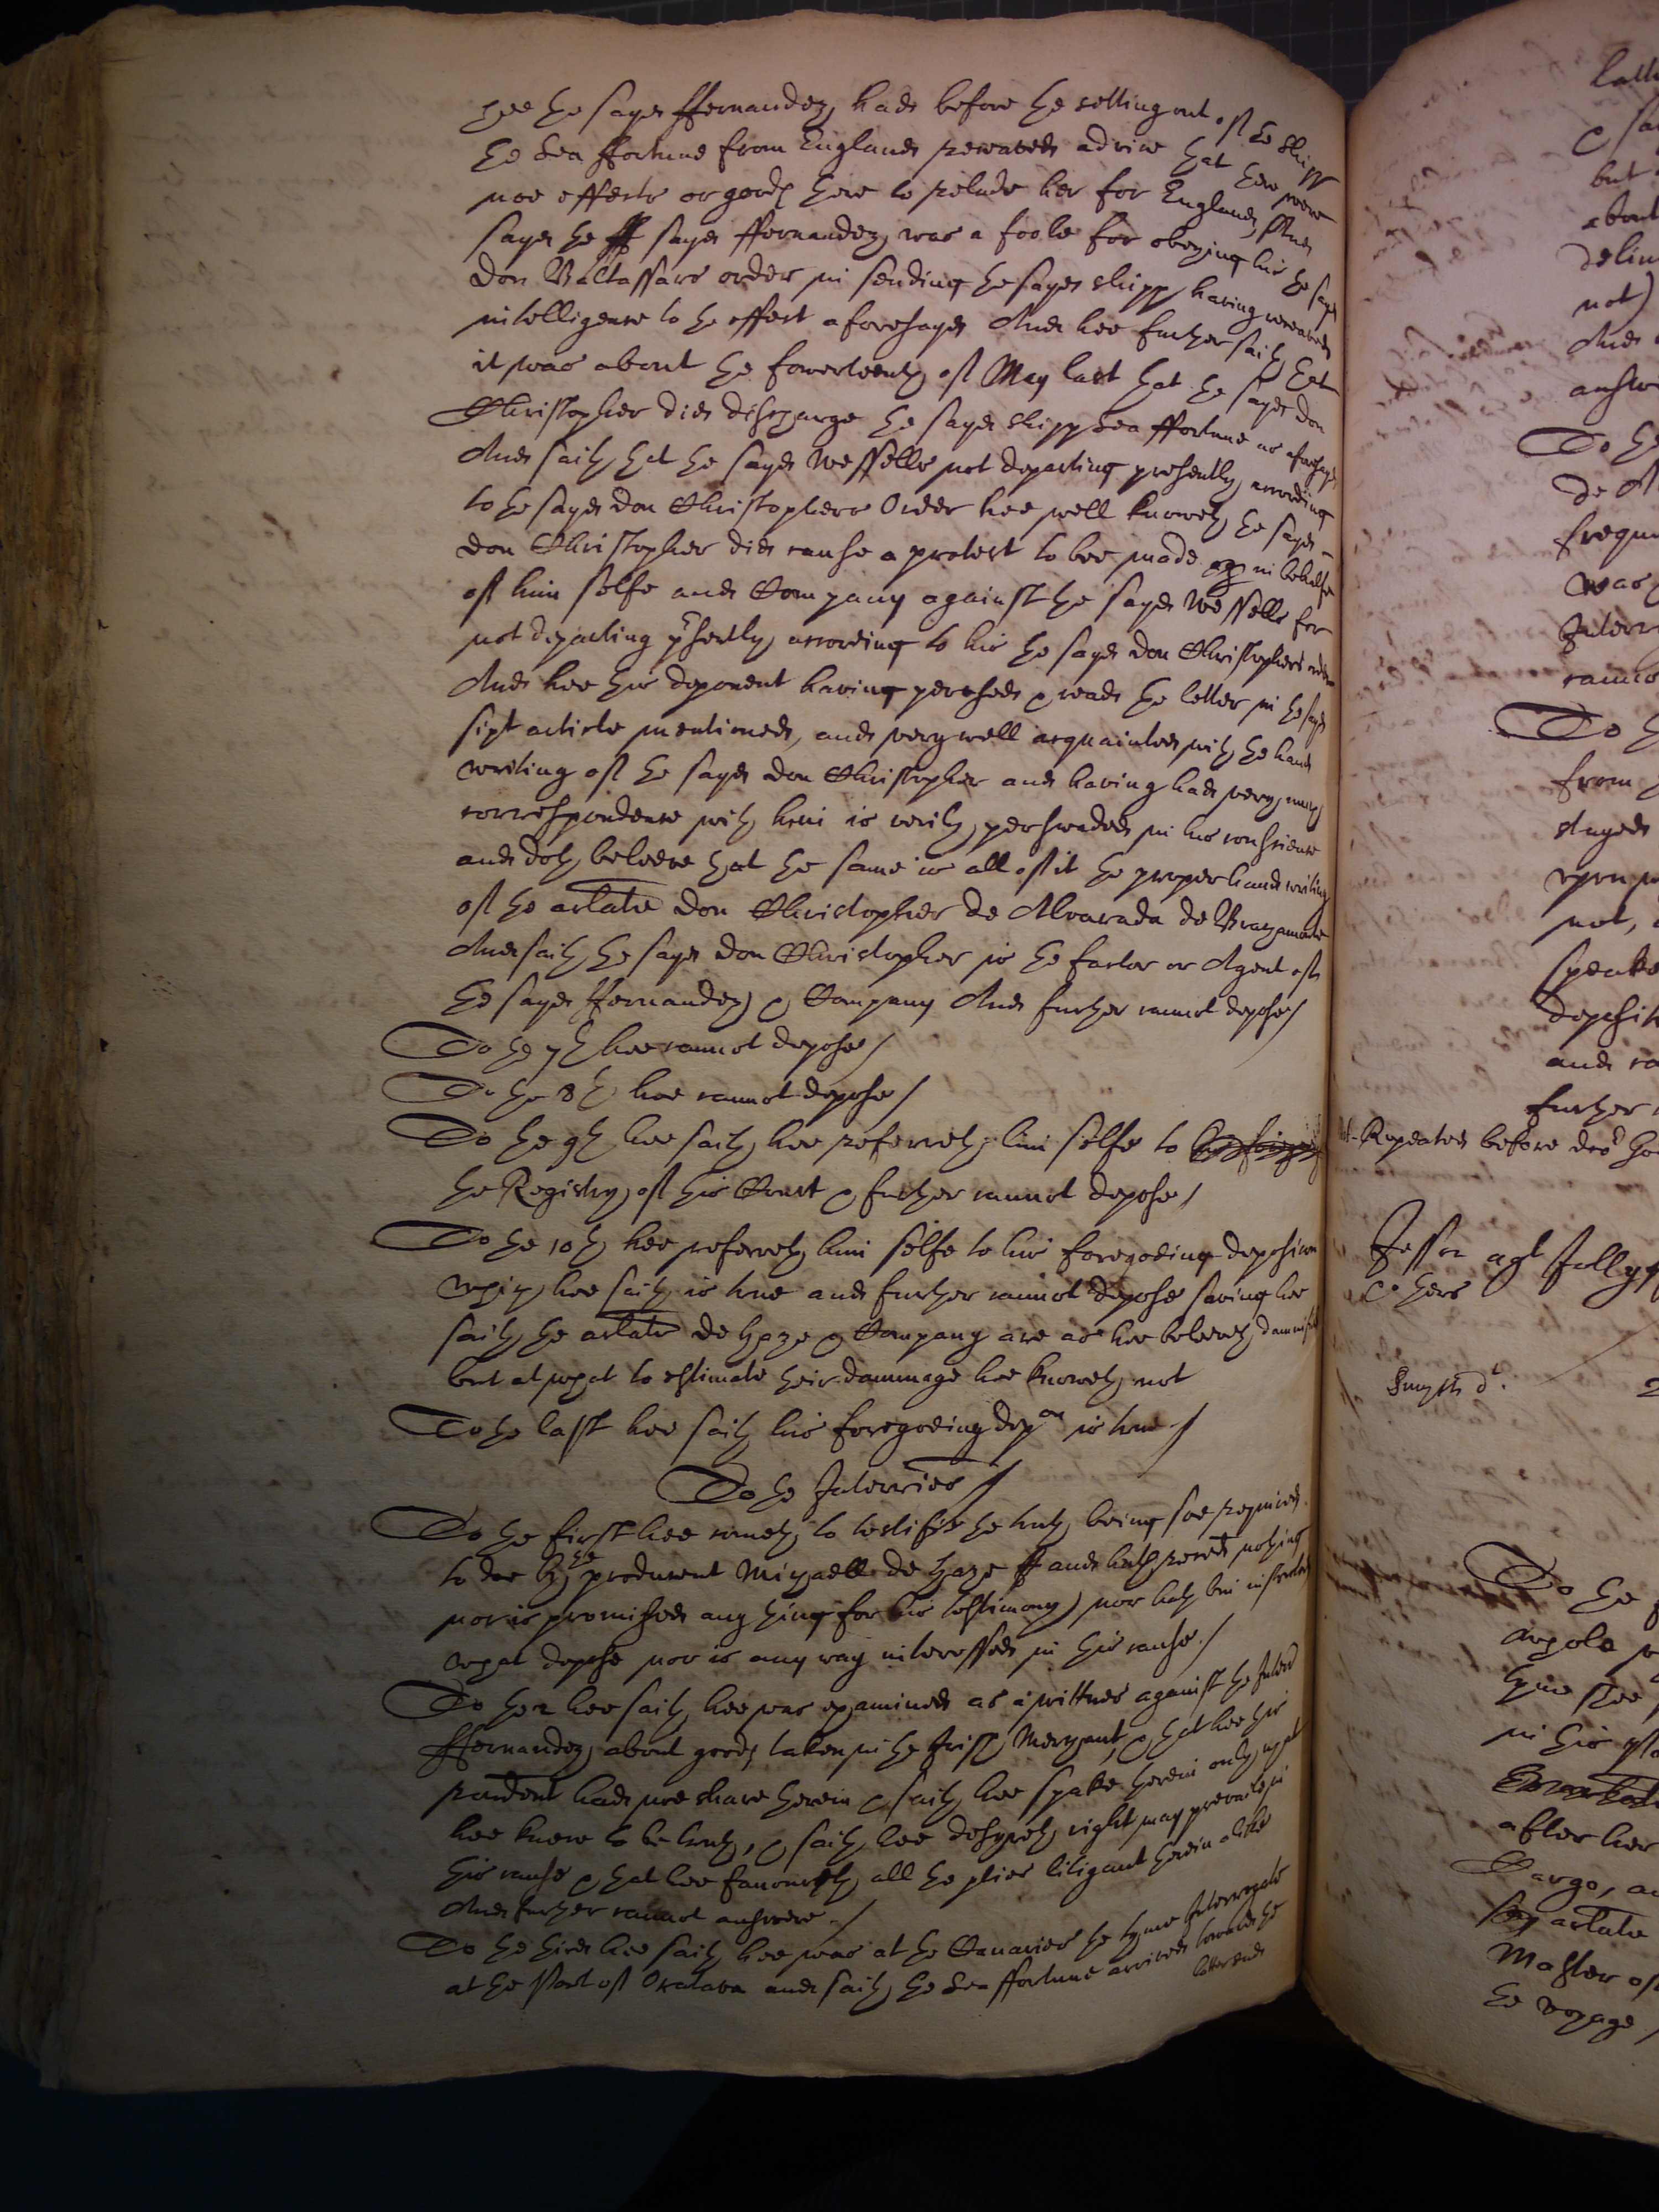 hee the sayd ffernandez, hade before the setting out of the Shipp
the Sea ffortune from England receaved advice that there were
noe effects or goods there to relade her for England, And
sayd the ff sayd ffernandez, was a foole for obeying his the sayd
don Baltassars order in sending the sayd shipp, having receaved
intelligence to the effect aforesayd And hee further saith that
it was about the fowerteenth of May last that the sayd don
Christopher did discharge the sayd shipp Sea ffortune as aforesayd
And saith that the sayd Wessells not departing presently, according
to the sayd don Christophers Order hee well knoweth the sayd
don Christopher did cause a protest to bee made in behalfe
of him selfe and Company against the sayd Wessells for
not departing presently, according to his the sayd don Christophers order
And hee this deponent having perused & reade the letter in the sayd
sixt article mentioned, and very well acquainted with the hand
writing of the sayd don Christopher and having had very many
correspondence with him is verily, perswaded in his conscience
and doth beleeve that the same is all of it the proper hand writing
of the arlate don Christopher de Alvarada de Bracamonte
And saith the sayd don Christopher is the factor or Agent of
the sayd Hernandez & Company And further cannot depose /
To the 7th hee cannot depose /
To the 8th hee cannot depose /
To the 9th hee saith, hee referreth him selfe to
the Registry of this Court & further cannot depose /
To the 10th hee referreth him selfe to his foregoeing deposition
which hee saith is true and further cannot depose saving hee
saith the arlate de Haze & Company are as hee beleeveth damnified
but at what to estimate their dammage hee knoweth not
To the last hee saith his foregoeing depon is true /
To the Interries /
To the first hee cometh to testifie the truth being soe required
to doe by the producent Michaell de Haze and hath recved nothing
nor is promised any thing for his testimony, nor hath bin instructed
what depose nor is any way interessed in this cause /
To the 2 hee saith hee was examined as a wittnes against the Interr
ffernandez, about goods taken in the Irish Merchant, & that hee this
rendent hade noe share therein & saith hee spake therein only what
hee knew to be truth, & saith hee desyreth right may prevaile in
this cause & that hee favoureth all the pties litigant therein alike
And further cannot answere /
To the third hee saith hee was at the Canaries the tyme Interrogate
at the Port of Oratava and saith the Sea ffortune arrived towards the
latter end
but
about
not)
And
To the
was
To
from
not,
speake
and
further
Repeated before
Jesson agt Jolly
& others
Smyth dt.
2
To the
whole
tyme shee
in this
after her
Cargo,
arlate
Master of
the voyage,